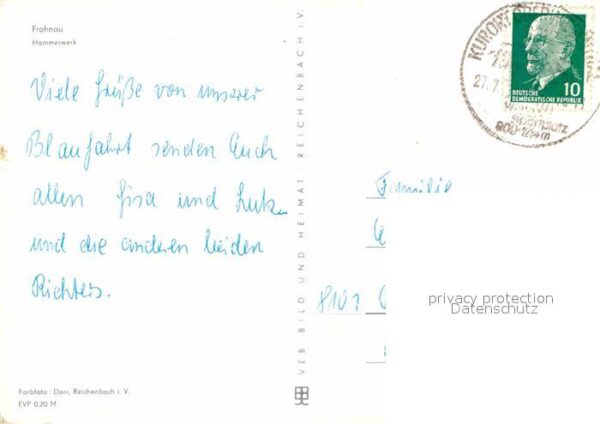 Frohnau
Hammerwerk
Viele Grüße von unserer
Blaufahrt senden Euch
allen Gisa und Lutz
und die anderen beiden
Richters.
Farbfoto: Darr, Reichenbach i. V.
EVP 0.20 M
VEB BILD UND HEIMAT · REICHENBACH i. V.
KURORT
27.7
800-1214m
DEUTSCHE
DEMOKRATISCHE REPUBLIK
10
Familie
8101
privacy protection
Datenschutz